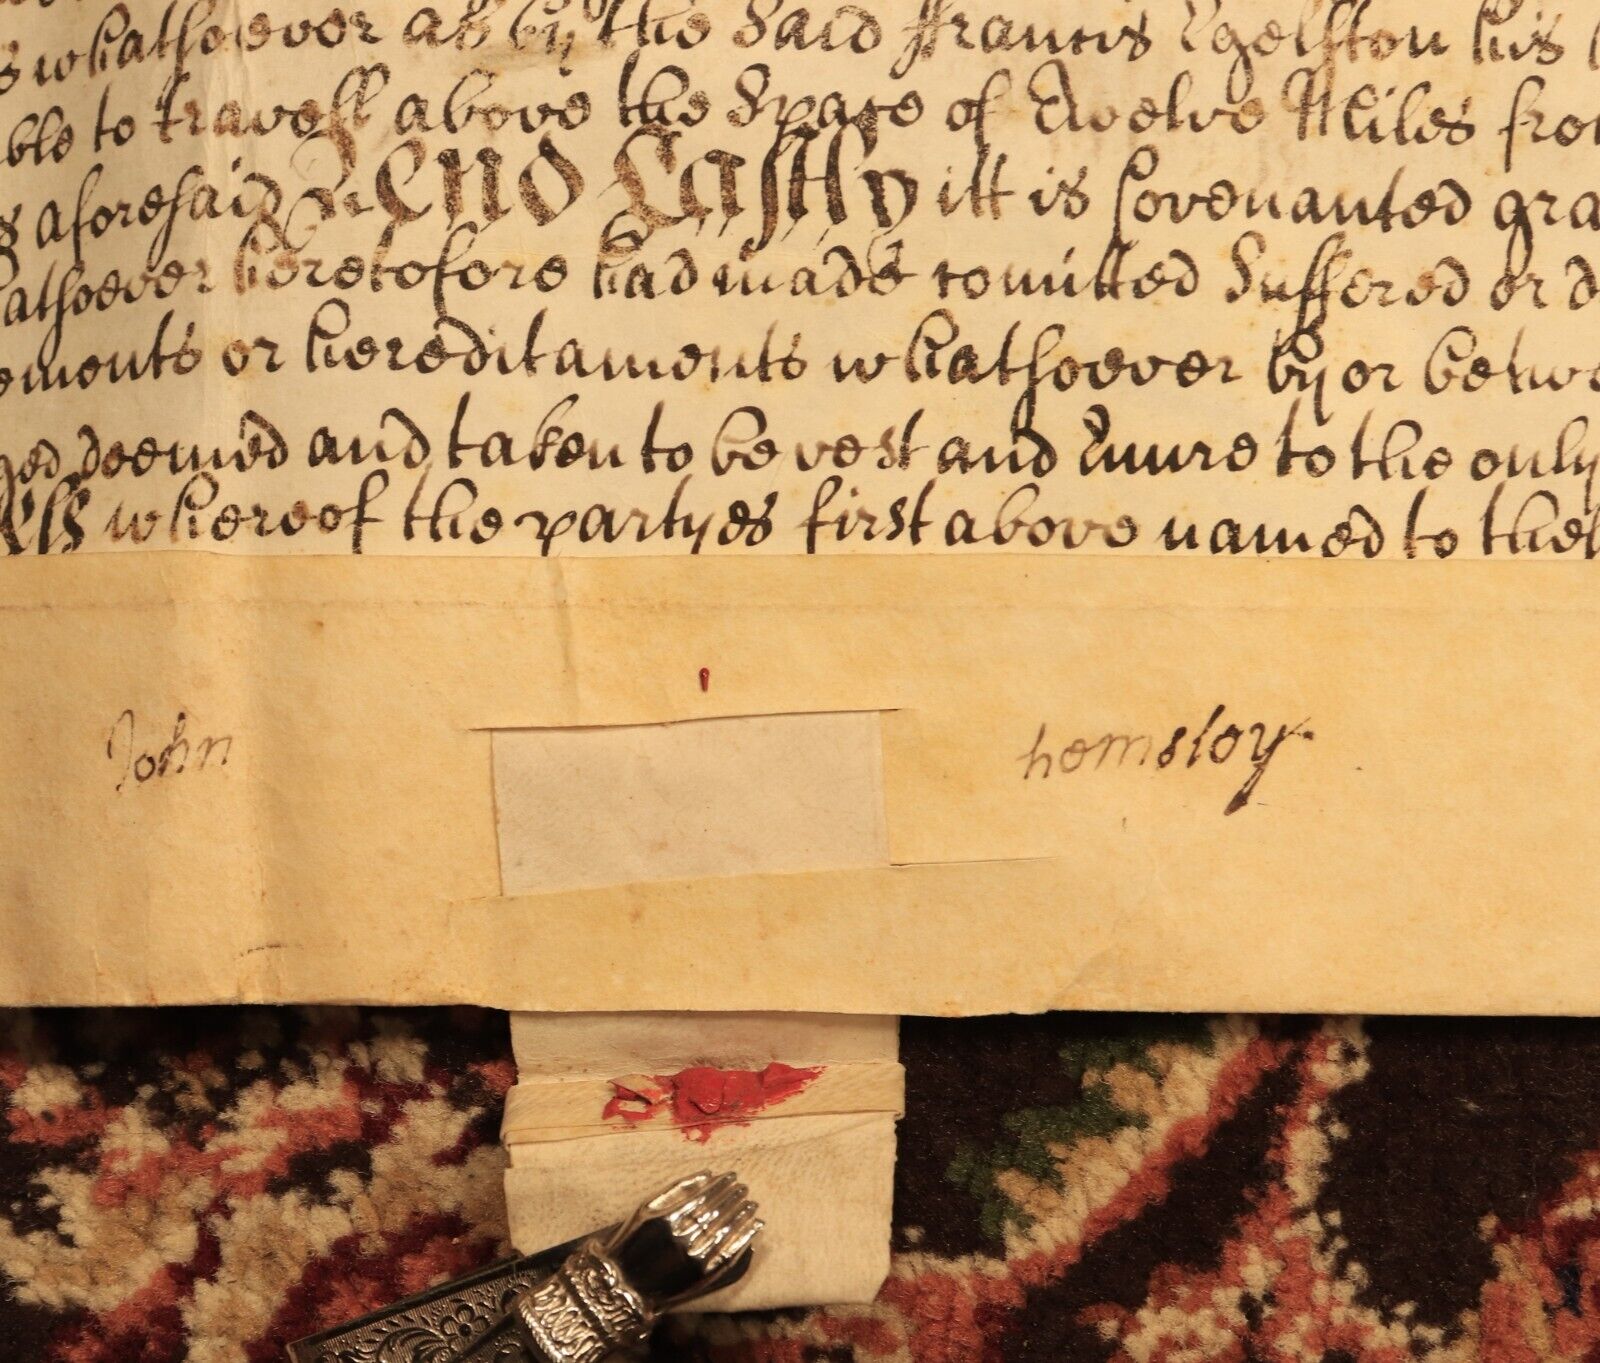 s whatsoever as by the said ffrancis Egelston his
ble to travell above the Space of Twelve Miles fro
s aforesaid And Lastly itt is Covenanted gra
atsoever heretofore had made comitted Suffered or d
ements or hereditaments whatsoever by or betwe
ged deemed and taken to be vest and Enure to the only
whereof the partyes first above named to thes
John hemsley